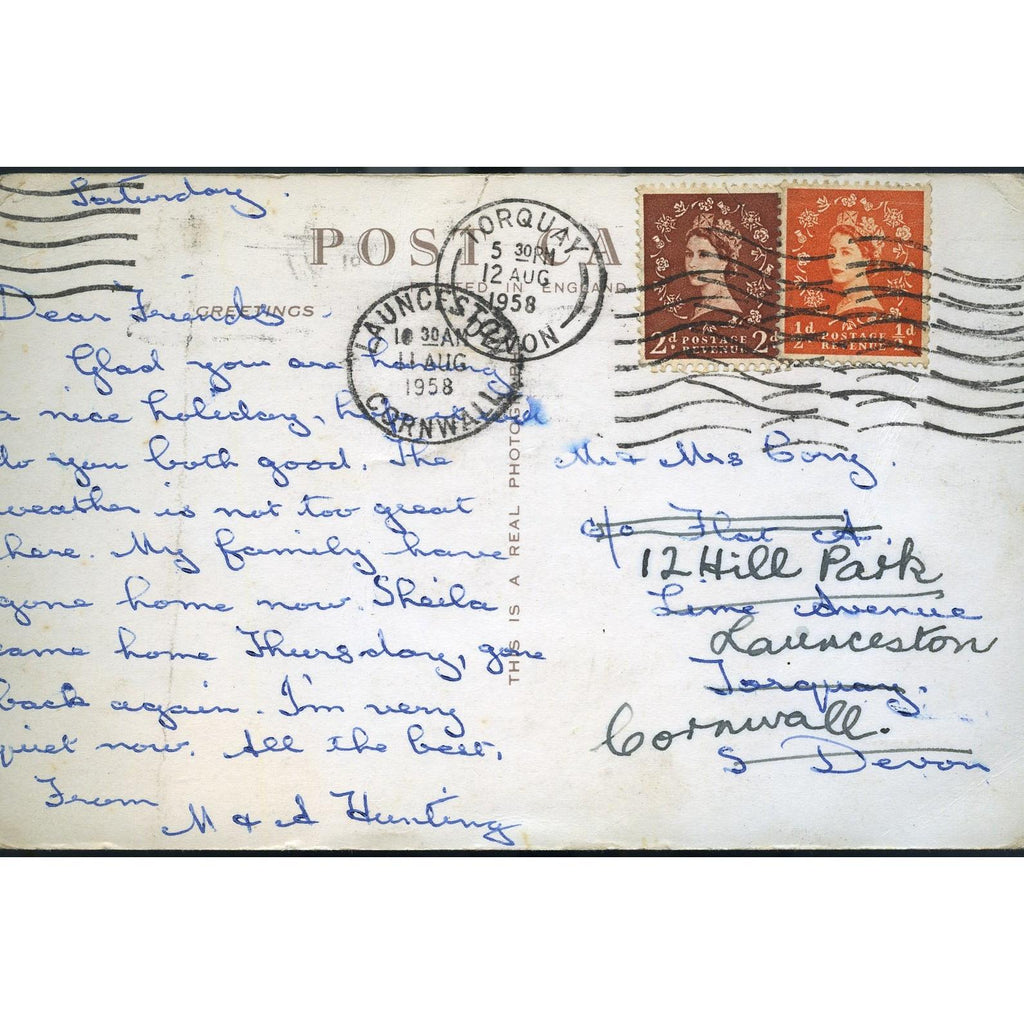 Saturday.
POST CA
TED IN ENGLAND
GREETINGS
TORQUAY
5 30PM
12 AUG
1958
DEVON
LAUNCESTON
10 30AM
11 AUG
1958
CORNWALL
2d POSTAGE 2d
REVENUE
½d POSTAGE ½d
REVENUE
Dear Friends.
Glad you are having
a nice holiday,
do you both good. The
weather is not too great
here. My family have
gone home now. Sheila
came home Thursday, gone
back again. I'm very
quiet now. All the best,
From
M & A Hunting
THIS IS A REAL PHOTOG
Mr & Mrs Cory.
c/o Flat A.
12 Hill Park
Lime Avenue
Launceston
Torquay.
Cornwall.
S Devon